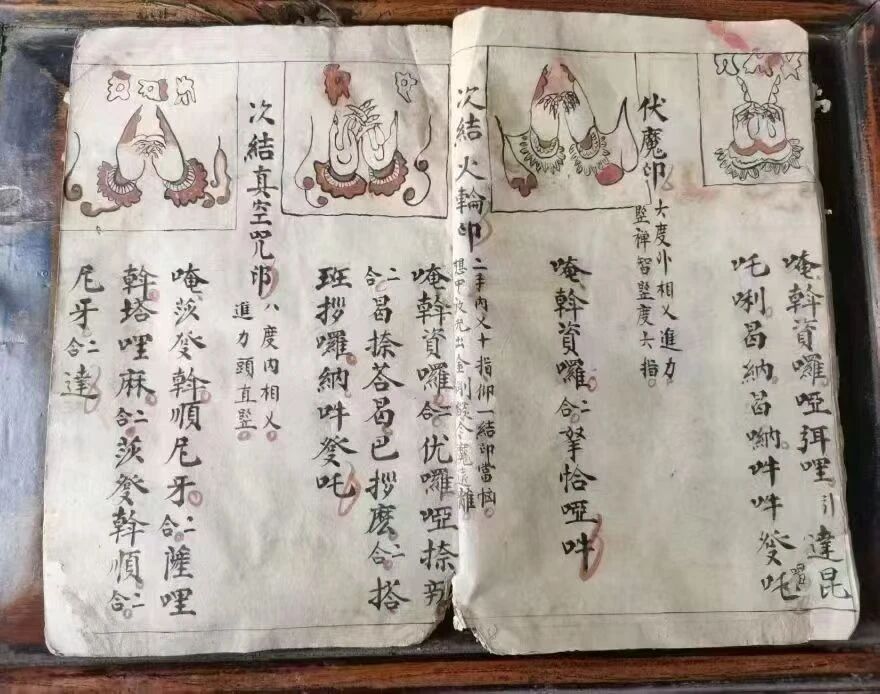 唵斡資囉啞弭哩引達昆
吒唎曷納曷喲吽吽癹吒
伏魔印
六度外相乂進力
豎禪智豎度六指
唵斡資囉二合拏恰啞吽
次結火輪印
二手內乂十指仰一結印當胸
唵斡資囉二合优囉啞捺
二合曷捺荅曷巴拶麽二合搭
班拶囉納吽癹吒
次結真空咒印
八度內相乂
進力頭直豎
唵莎癹斡順尼牙二合薩哩
斡塔哩麻二合莎癹斡順二合
尼牙二合達